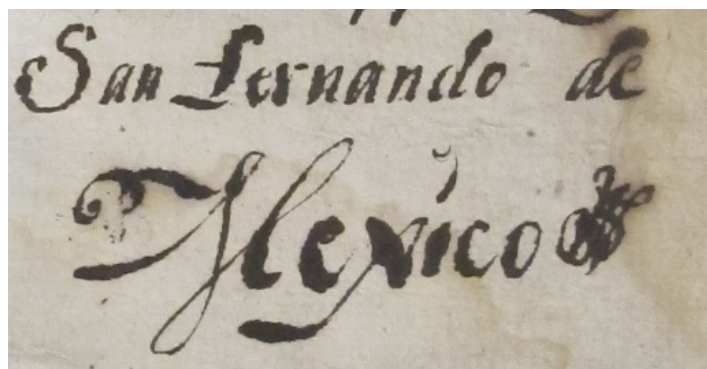 San Fernando de
Mexico